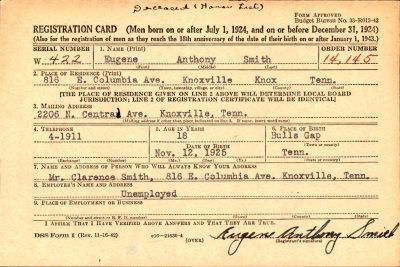 Deceased (Honor List)
Form Approved
Budget Bureau No. 33-R013-42
REGISTRATION CARD (Men born on or after July 1, 1924, and on or before December 31, 1924)
(Also for the registration of men as they reach the 18th anniversary of the date of their birth on or after January 1, 1943.)
SERIAL NUMBER 1. NAME (Print) ORDER NUMBER
W 422 Eugene Anthony Smith 14,145
(First) (Middle) (Last)
2. PLACE OF RESIDENCE (Print)
816 E. Columbia Ave. Knoxville Knox Tenn.
(Number and street) (Town, township, village, or city) (County) (State)
[THE PLACE OF RESIDENCE GIVEN ON LINE 2 ABOVE WILL DETERMINE LOCAL BOARD
JURISDICTION; LINE 2 OF REGISTRATION CERTIFICATE WILL BE IDENTICAL]
3. MAILING ADDRESS
2206 N. Central Ave. Knoxville, Tenn.
[Mailing address if other than place indicated on line 2. If same, insert word same]
4. TELEPHONE 5. AGE IN YEARS 6. PLACE OF BIRTH
4-1911 18 Bulls Gap
DATE OF BIRTH
Nov. 12, 1925 Tenn.
(Exchange) (Number) (Mo.) (Day) (Yr.) (State or country)
7. NAME AND ADDRESS OF PERSON WHO WILL ALWAYS KNOW YOUR ADDRESS
Mr. Clarence Smith, 816 E. Columbia Ave. Knoxville, Tenn.
8. EMPLOYER'S NAME AND ADDRESS
Unemployed
9. PLACE OF EMPLOYMENT OR BUSINESS
(Number and street or R. F. D. number) (Town) (County) (State)
I AFFIRM THAT I HAVE VERIFIED ABOVE ANSWERS AND THAT THEY ARE TRUE.
DSS Form 1 (Rev. 11-16-42) (OVER) Eugene Anthony Smith
(Registrant's signature)